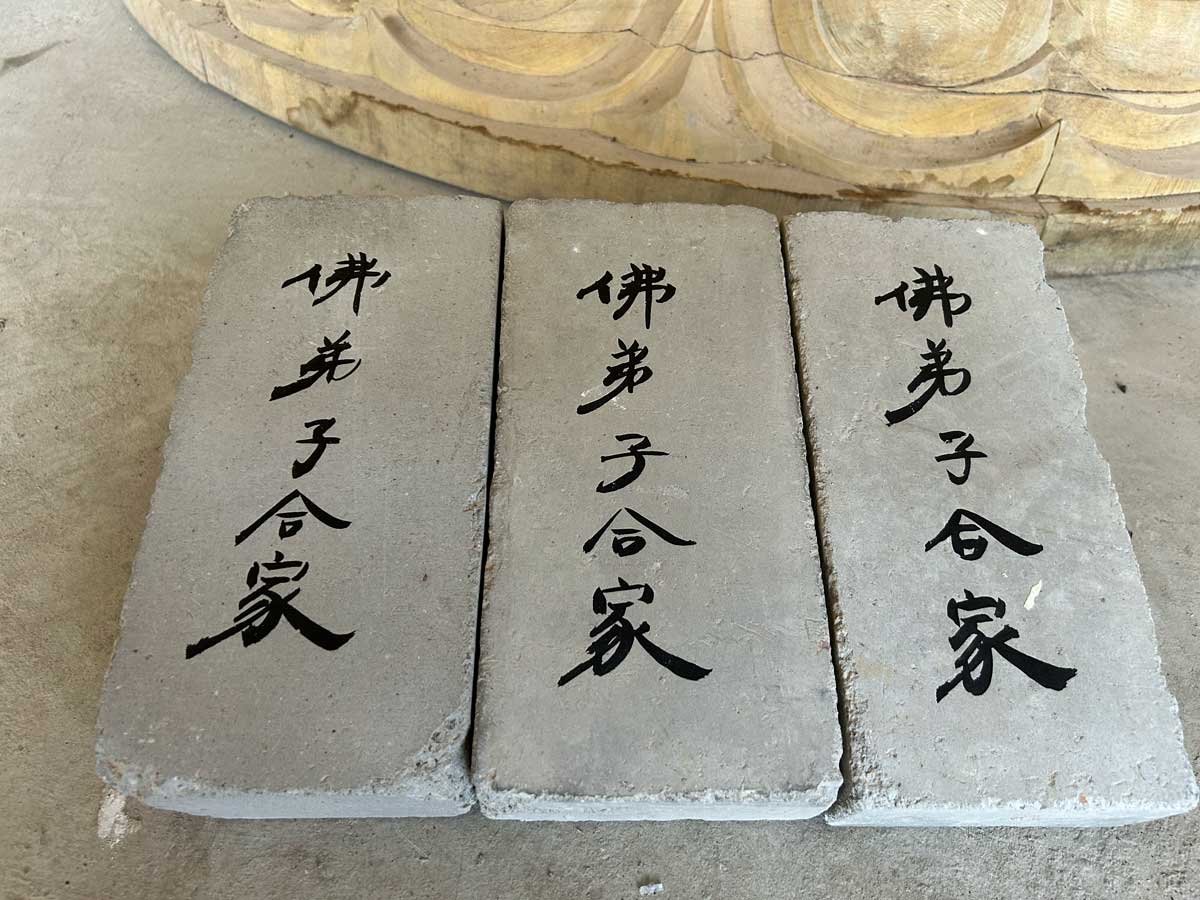 佛弟子合家
佛弟子合家
佛弟子合家